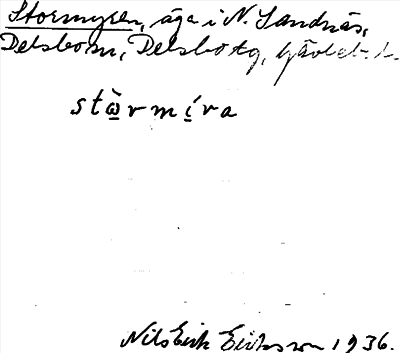 Stormyren, äga i N. Sandnäs,
Delsbo sn, Delsbo tg, Gävleb. l.
stὼ̲rmí̲ra
Nils Erik Eriksson 1936.